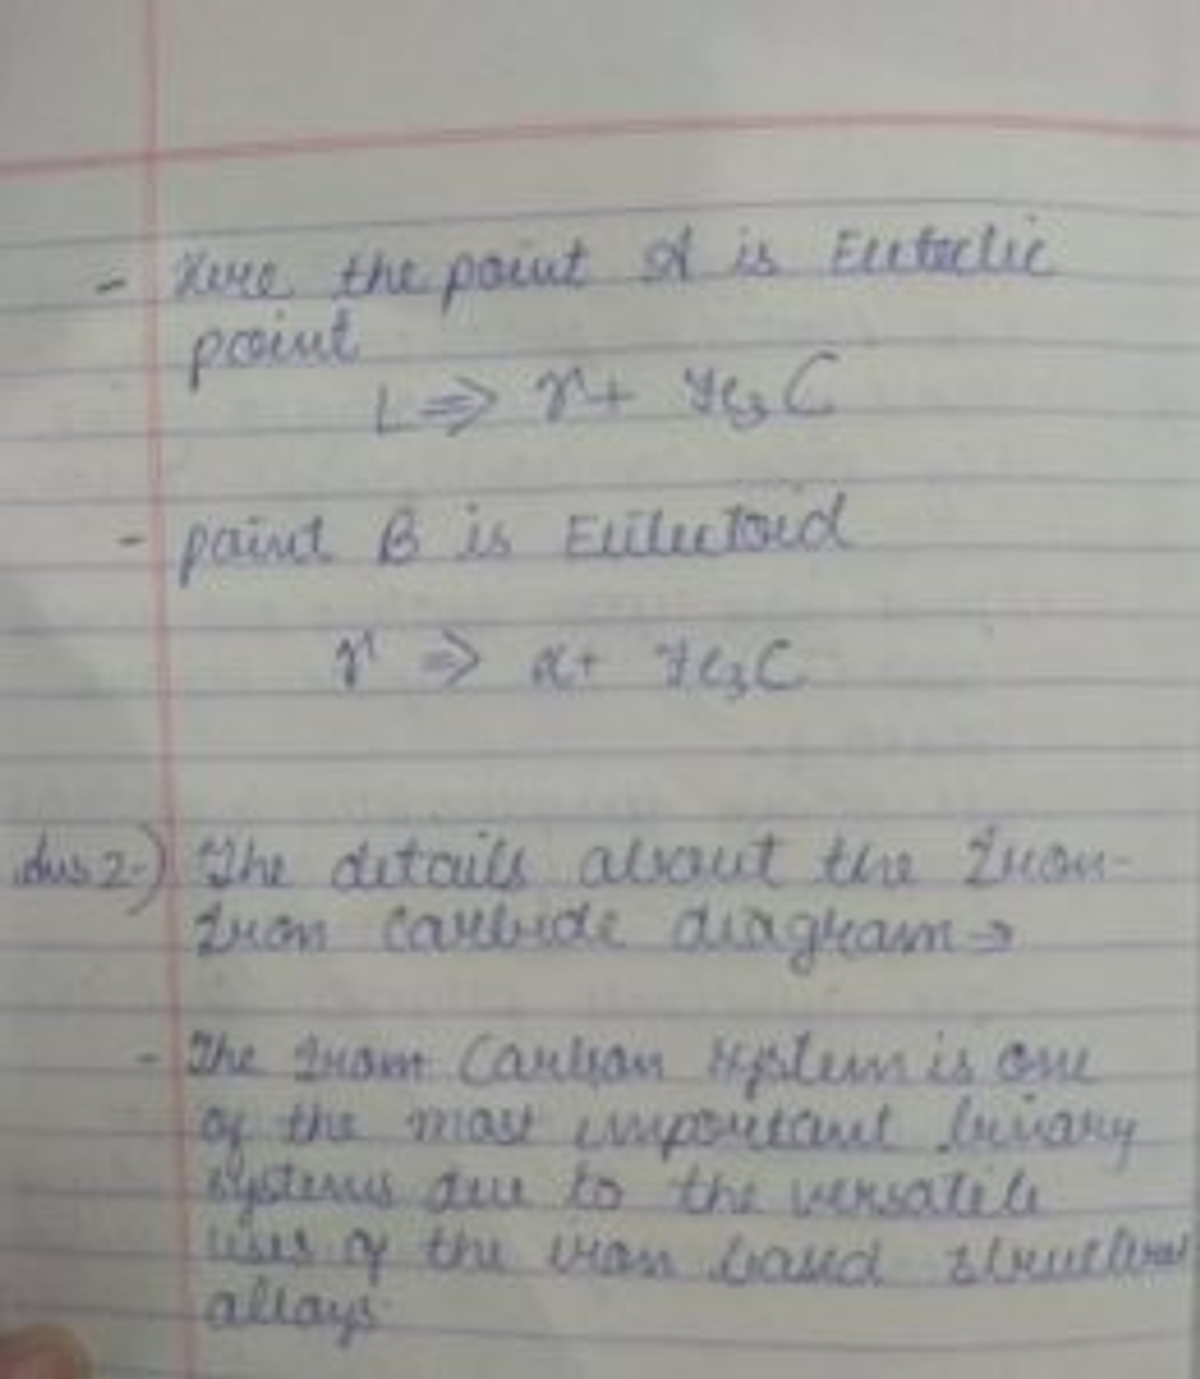 - Here the point A is Eutectic
point
L ⇒ γ + Fe₃C
- point B is Eutectoid
γ ⇒ α + Fe₃C
Ans 2-) The details about the Iron-
Iron carbide diagram →
- The Iron Carbon system is one
of the most important binary
systems due to the versatile
uses of the iron based structural
alloys.